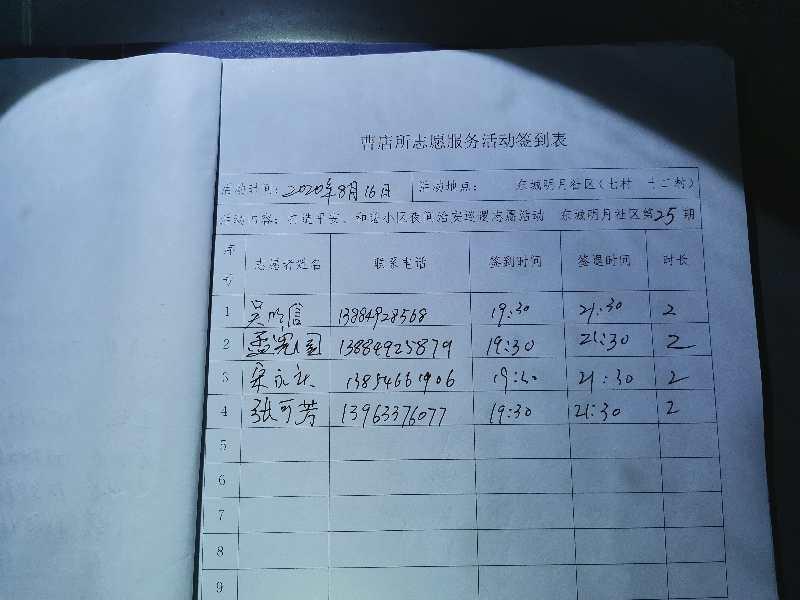 曹店所志愿服务活动签到表
活动时间：2020年8月16日 活动地点： 东城明月社区（七村 十二村）
活动内容：打造平安、和谐小区夜间治安巡逻志愿活动 东城明月社区第25期
序号 志愿者姓名 联系电话 签到时间 签退时间 时长
1 吴 信 13884928568 19:30 21:30 2
2 孟 国 13884925879 19:30 21:30 2
3 宋 19:30 21:30 2
4 张可芳 13963376077 19:30 21:30 2
5
6
7
8
9